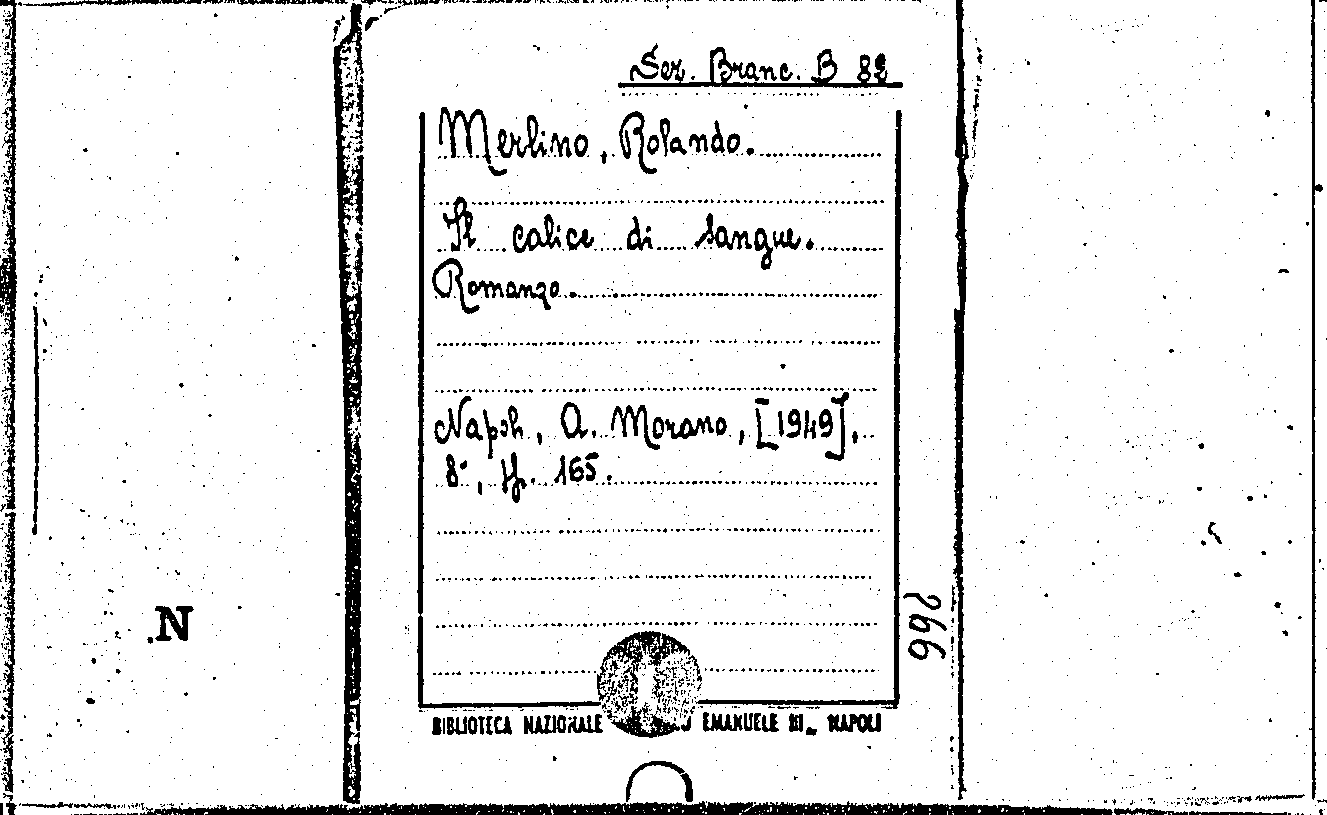 Sez. Branc. B 82
Merlino, Rolando.
Il calice di sangue.
Romanzo.
Napoli, A. Morano, [1949],
8°, pp. 165.
266
.N
BIBLIOTECA NAZIONALE EMANUELE III_ NAPOLI